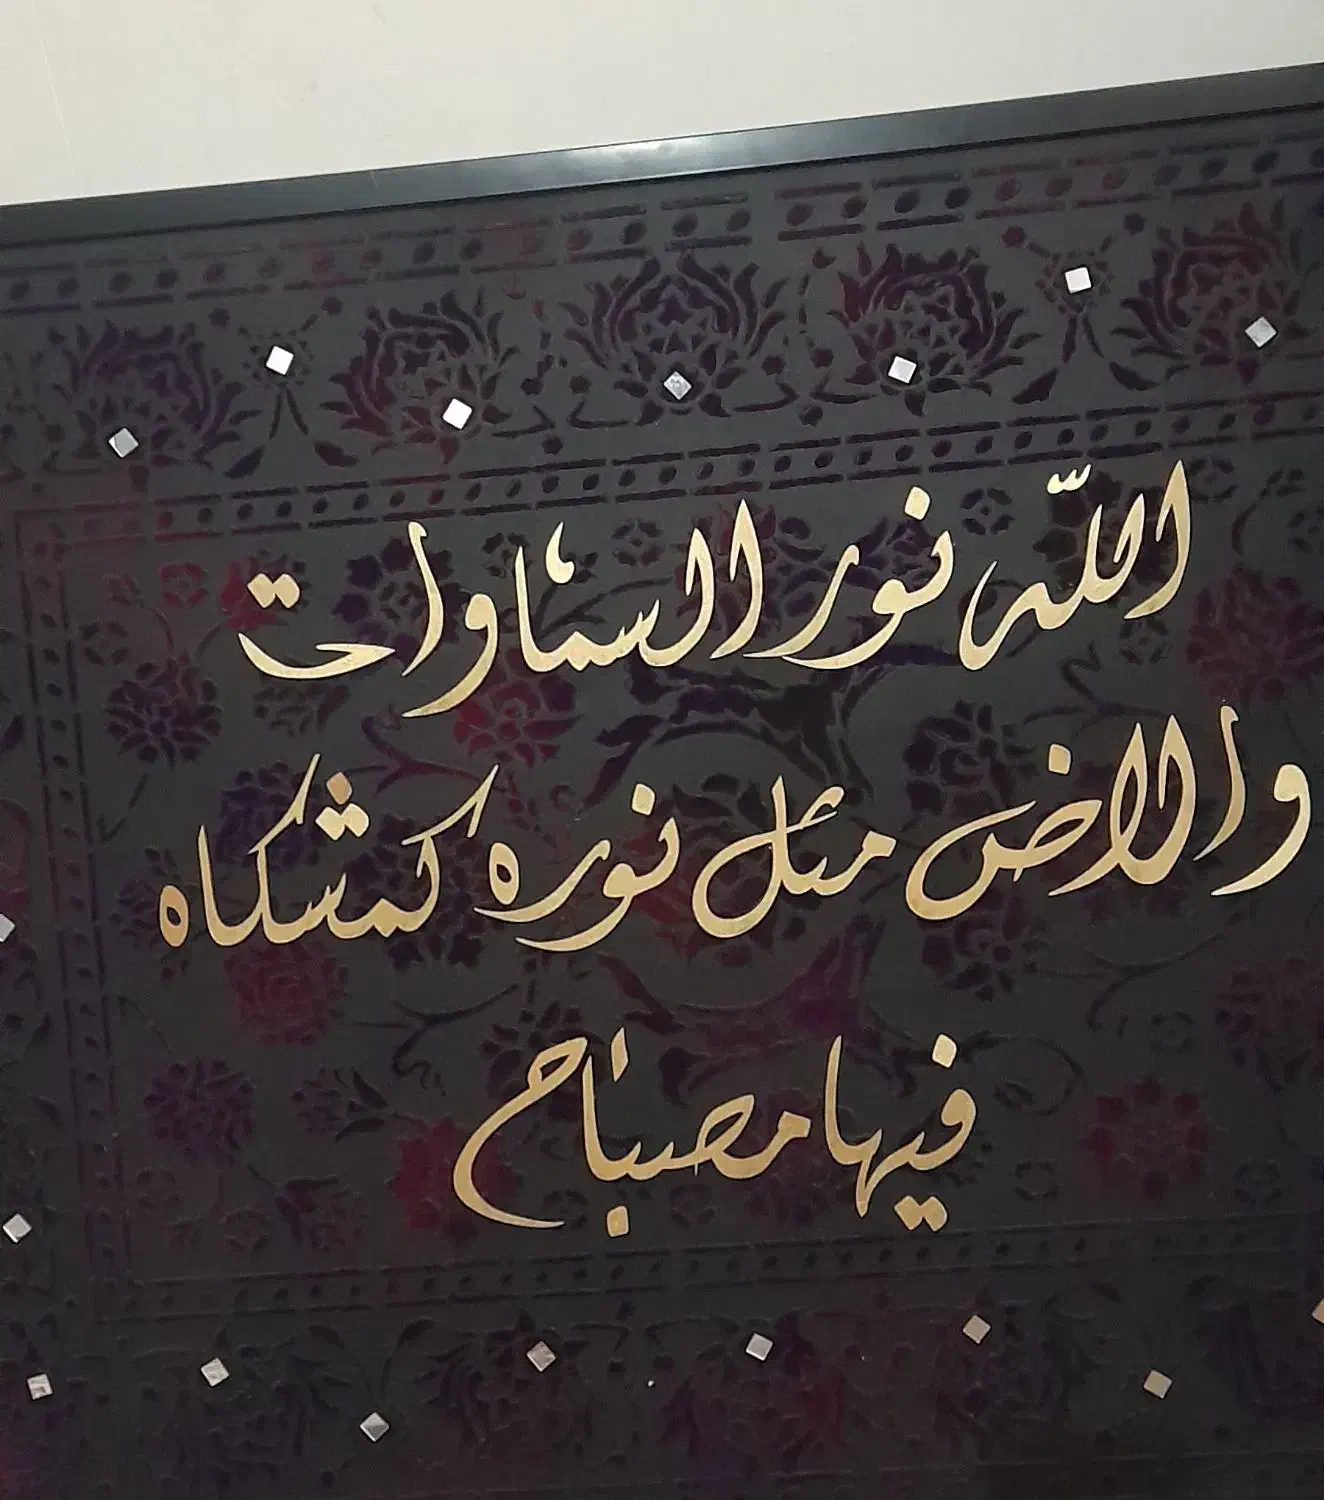 اللّه نور السماوات
والارض مثل نوره كمشكاه
فيها مصباح